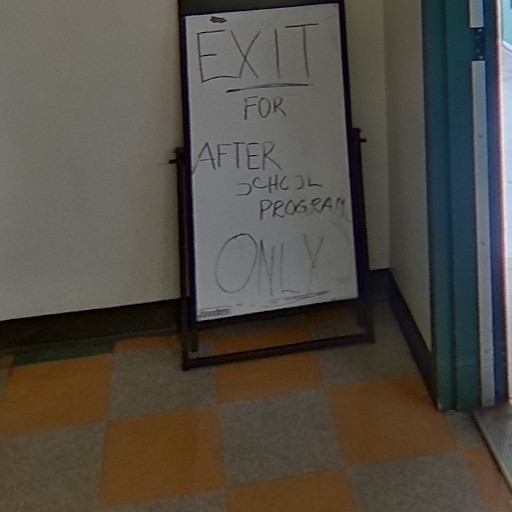 EXIT
FOR
AFTER
SCHOOL
PROGRAM
ONLY